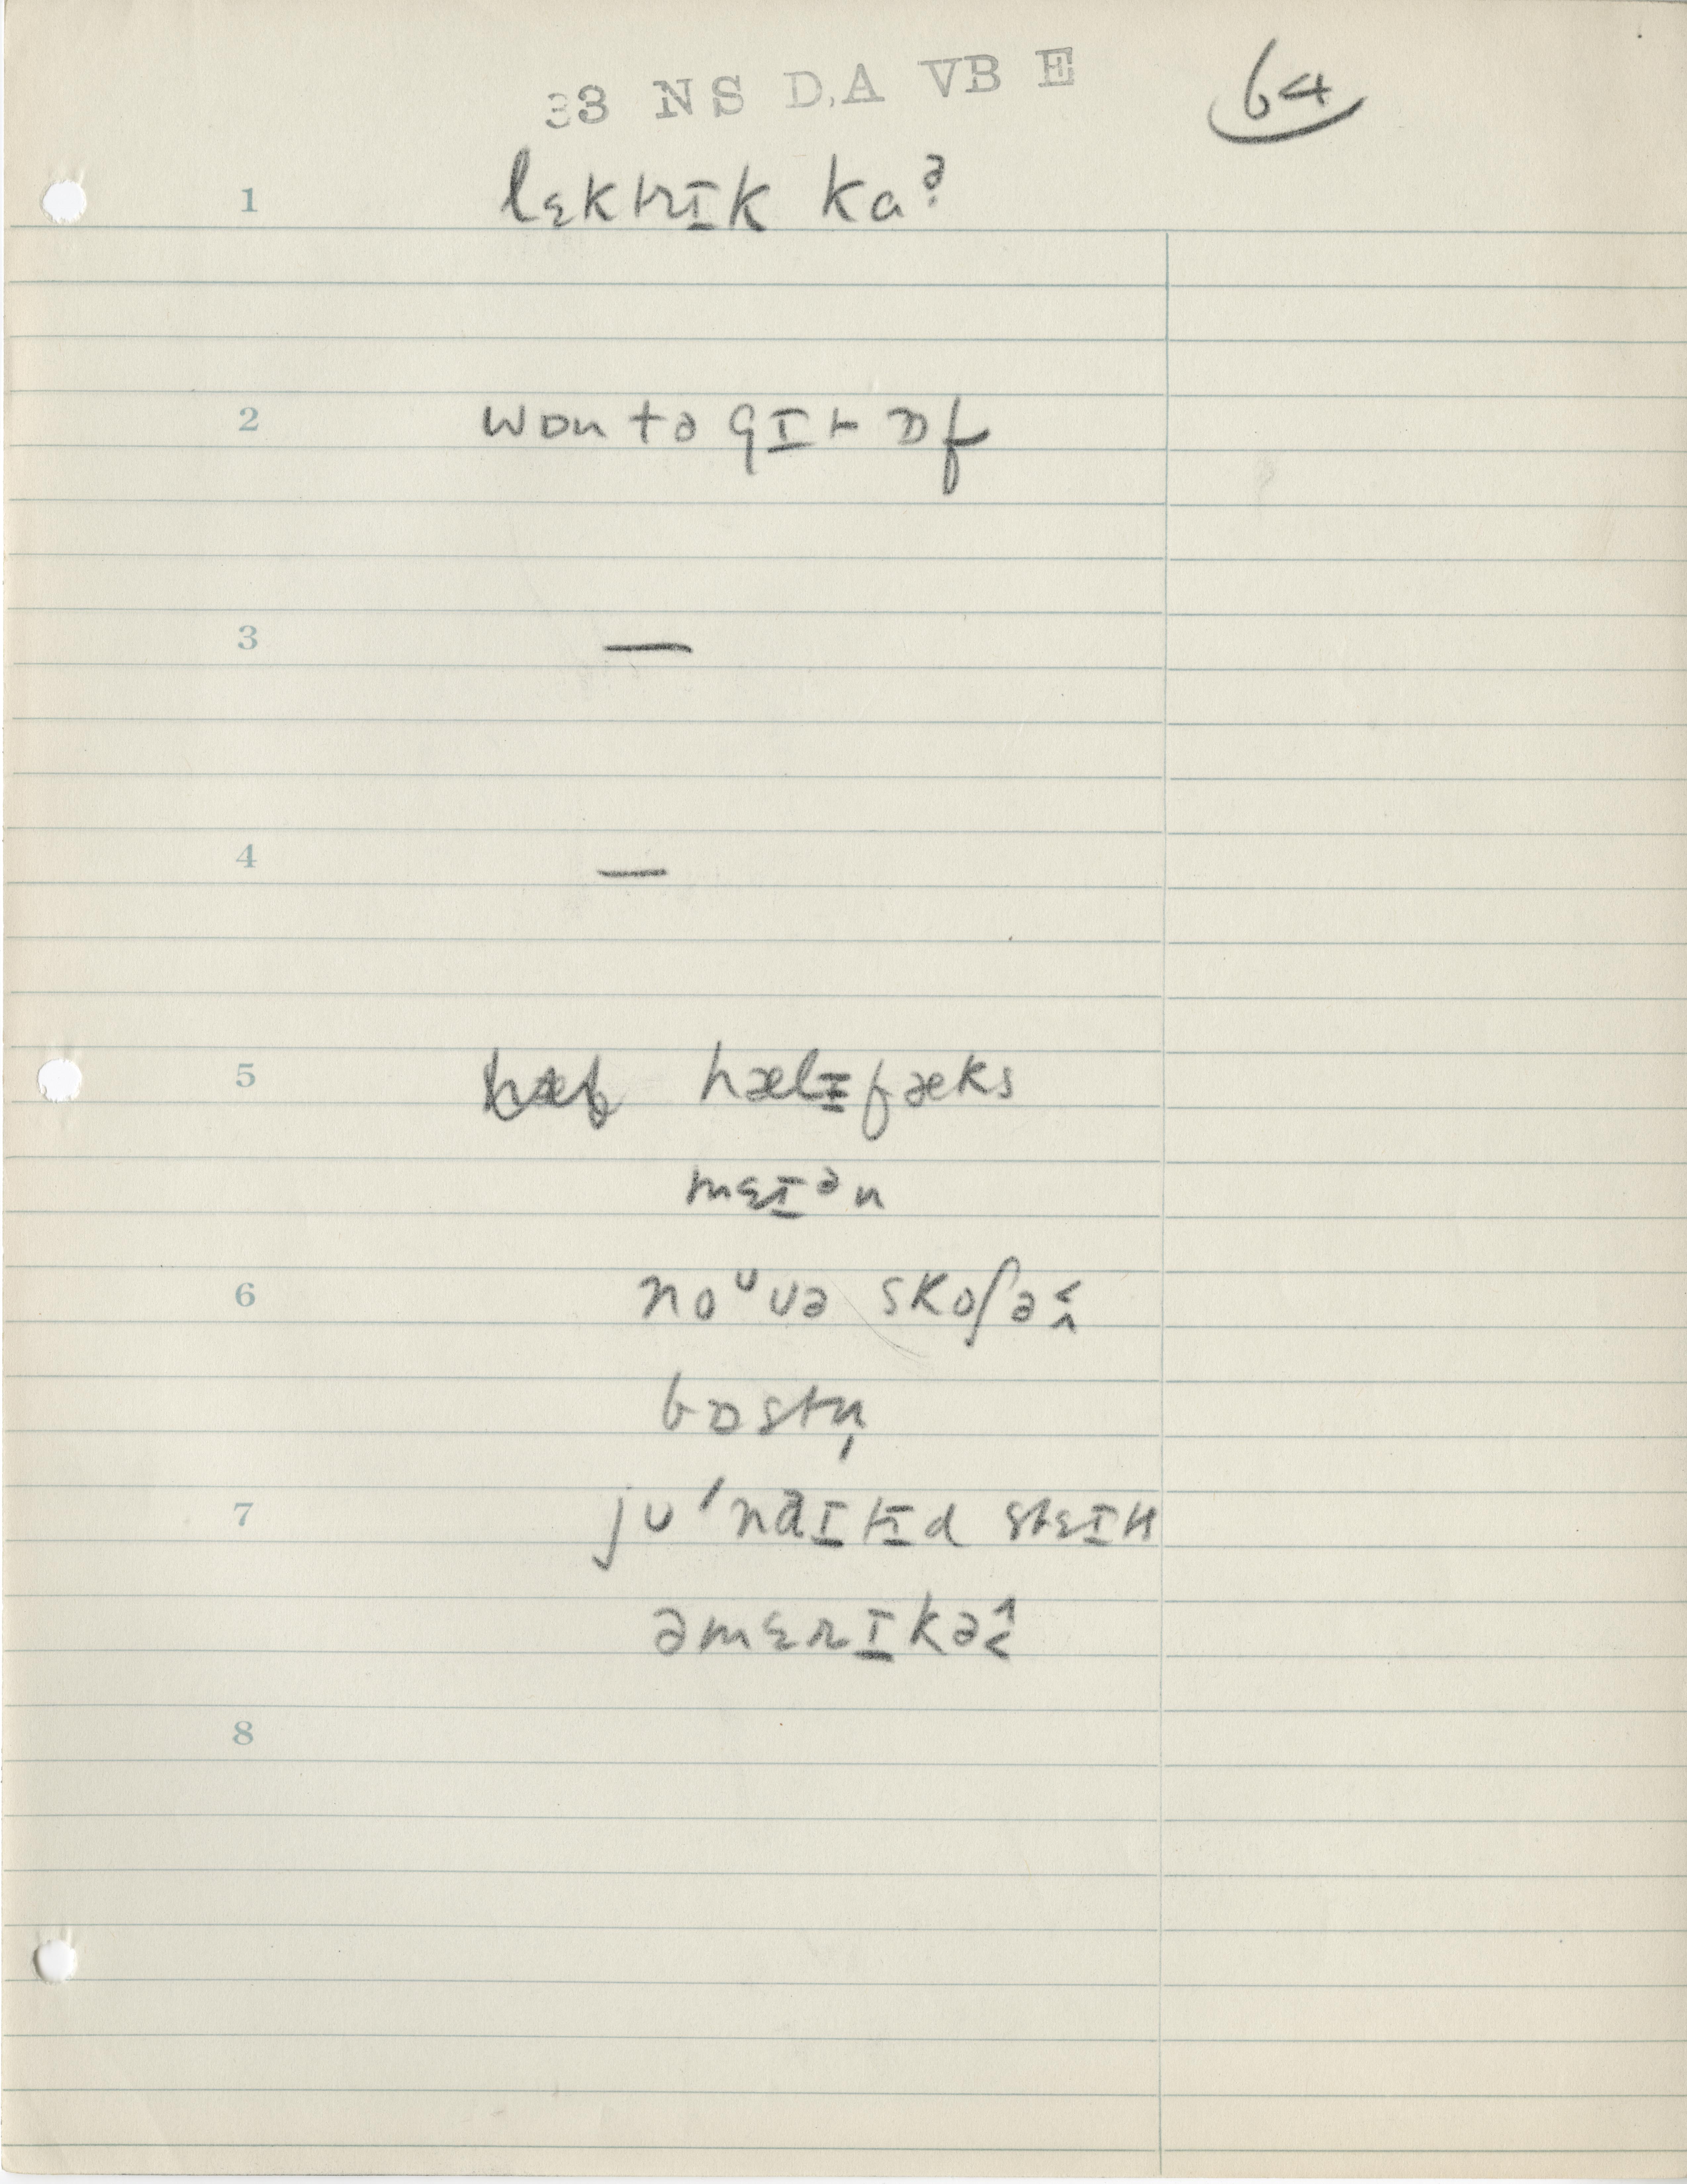 33 NS D.A VB E 64
1 lɛktrɪk kaᵊ
2 wɒn tə gɪt ɒf
3 —
4 —
5 hælɪfæks
mɛɪᵊn
6 noᵘvə skoʃə
bɒstn̩
7 juˈnaɪtɪd stɛɪts
əmɛrɪkə
8